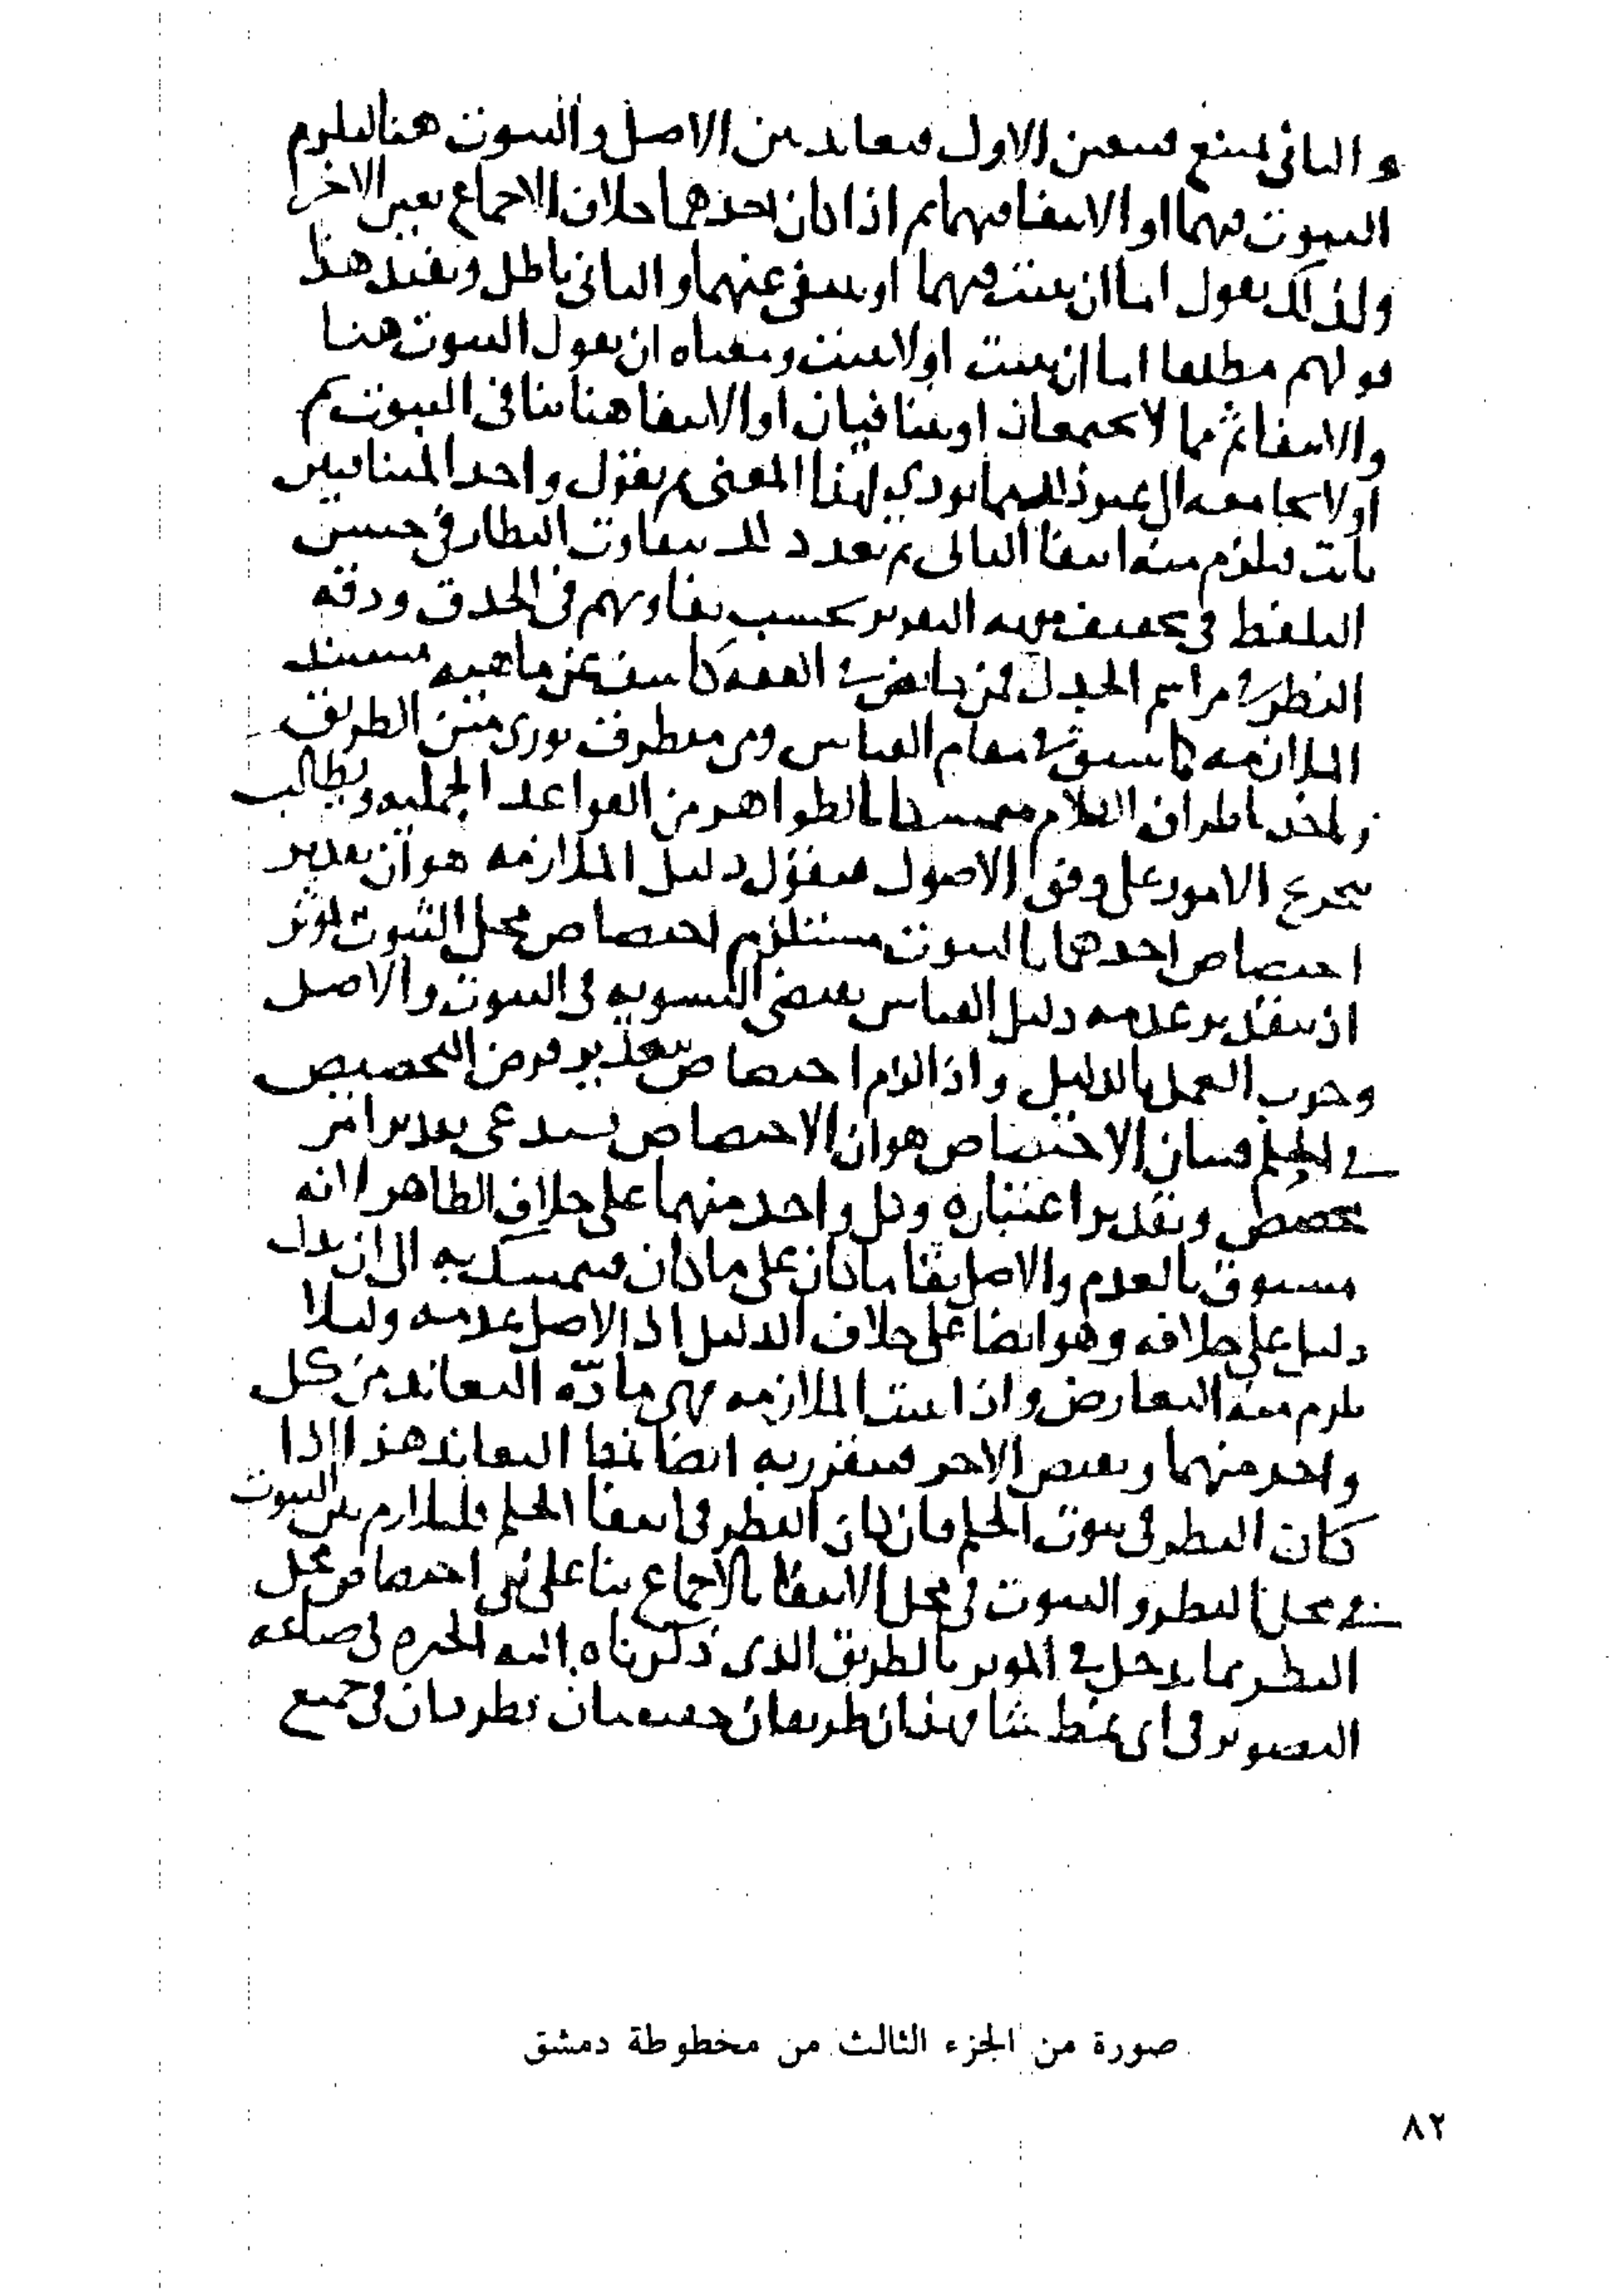 والثاني ممتنع فيتعين الاول فيعاند بين الاصل والثبوت هنا ليلزم
الثبوت فيهما او الانتفا فيهما ثم اذا كان احدهما خلاف الاجماع تعين الاخر
ولذلك يقول اما ان يثبت فيهما او ينتفي عنهما والثاني باطل ويفيد هذا
قولهم مطلقا اما ان يثبت اولا يثبت ومعناه ان يقول الثبوت هنا
والانتفا ثم مما لا يجتمعان او يتنافيان او الانتفا هنا ينافي الثبوت ثم
اولا يجامعه الى غير ذلك مما يودي لهذا المعنى ثم يقول واحد المتنافيين
ثابت فيلزم منه انتفا التالي ثم تعدد لك بتفاوت النظار في حسن
التلفظ في التقرير بحسب تفاوتهم في الحذق ودقة
النظر في مراسم الجدل فمن في الفقه كاشف عن ماهية مستند
الملازمة كما سبق في مقام القياس ومن متطرف يوري متن الطريق
وياخذ باطراف الكلام متمسكا بالظواهر من القواعد الجملية ويطالب
بتخريج الامور على وفق الاصول فيقول دليل الملازمة هو ان تقدير
اختصاص احدهما بالثبوت مستلزم اختصاص محل الثبوت بموثر
اذ بتقدير عدمه دليل القياس يقتضي التسوية في الثبوت والاصل
وجوب العمل بالدليل واذا لزم اختصاص بتقدير فرض التخصيص
في الحكم فبيان الاختصاص هو ان الاختصاص يستدعي تقدير امر
مخصص وتقدير اعتباره وكل واحد منهما على خلاف الظاهر لانه
مسبوق بالعدم والاصل بقا ما كان على ما كان فيتمسك به الى ان يدل
دليل على خلافه وهو ايضا على خلاف الدليل اذ الاصل عدمه وليلا
يلزم منه التعارض واذا ثبت الملازمة فهي مادّة التعاند من كل
واحد منهما ونقيض الاخر فيقرر به ايضا نمط التعاند هذا اذا
كان النظر في ثبوت الحكم فان كان النظر في انتفا الحكم فليلازم بين الثبوت
في محل النظر والثبوت في محل الانتفا بالاجماع بنا على نفي اختصاص محل
النظر بما يدخل في الموثر بالطريق الذي ذكرناه اليه الخيره في صناعة
التصوير في اي نمط شا فهذان طريقان نظريان في جميع
صورة من الجزء الثالث من مخطوطة دمشق
٨٢